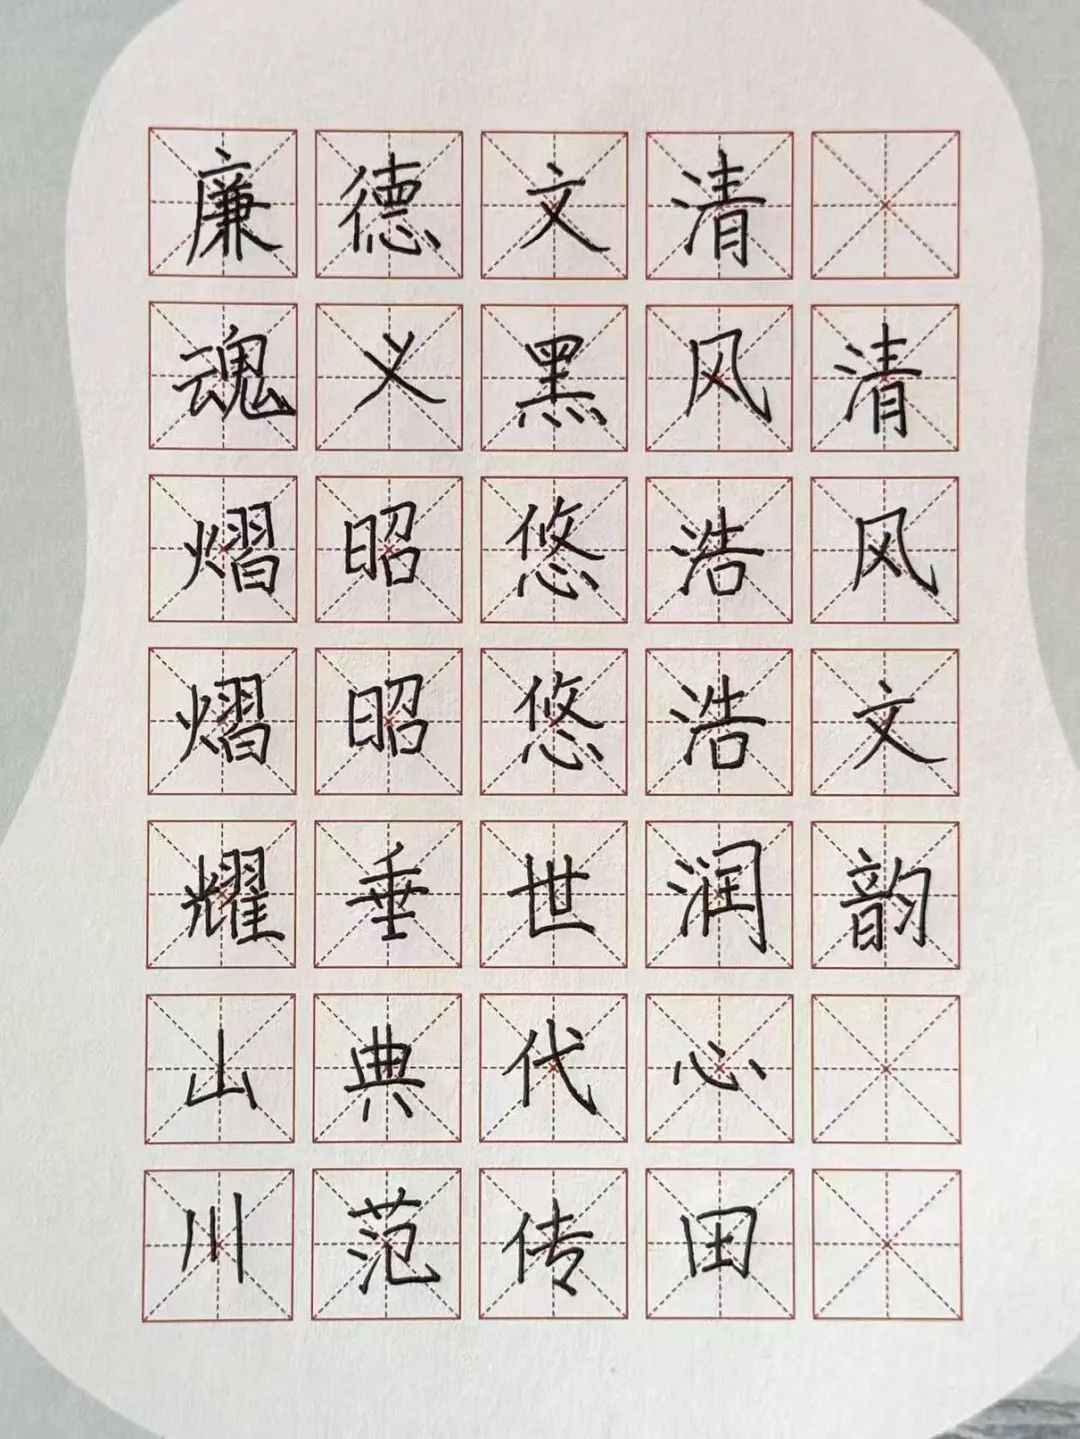 清风文韵
清风浩浩润心田
文黑悠悠世代传
德义昭昭垂典范
廉魂熠熠耀山川